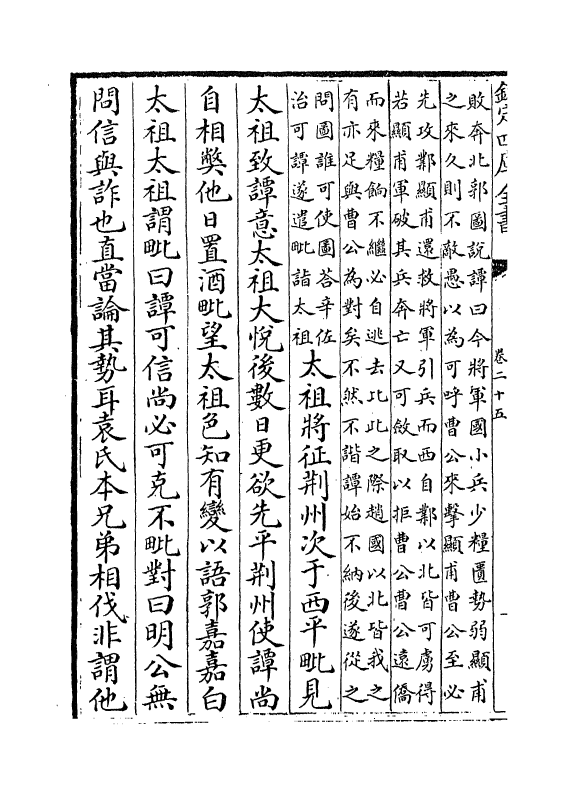 欽定四庫全書
卷二十五
敗奔北郭圖說譚曰今將軍國小兵少糧匱勢弱顯甫
之來久則不敵愚以為可呼曹公來擊顯甫曹公至必
先攻鄴顯甫還救將軍引兵而西自鄴以北皆可虜得
若顯甫軍破其兵奔亡又可斂取以拒曹公曹公遠僑
而來糧餉不繼必自逃去比此之際趙國以北皆我之
有亦足與曹公為對矣不然不諧譚始不納後遂從之
問圖誰可使圖荅辛佐
治可譚遂遣毗詣太祖
太祖將征荆州次于西平毗見
太祖致譚意太祖大悅後數日更欲先平荆州使譚尚
自相弊他日置酒毗望太祖色知有變以語郭嘉嘉白
太祖太祖謂毗曰譚可信尚必可克不毗對曰明公無
問信與詐也直當論其勢耳袁氏本兄弟相伐非謂他